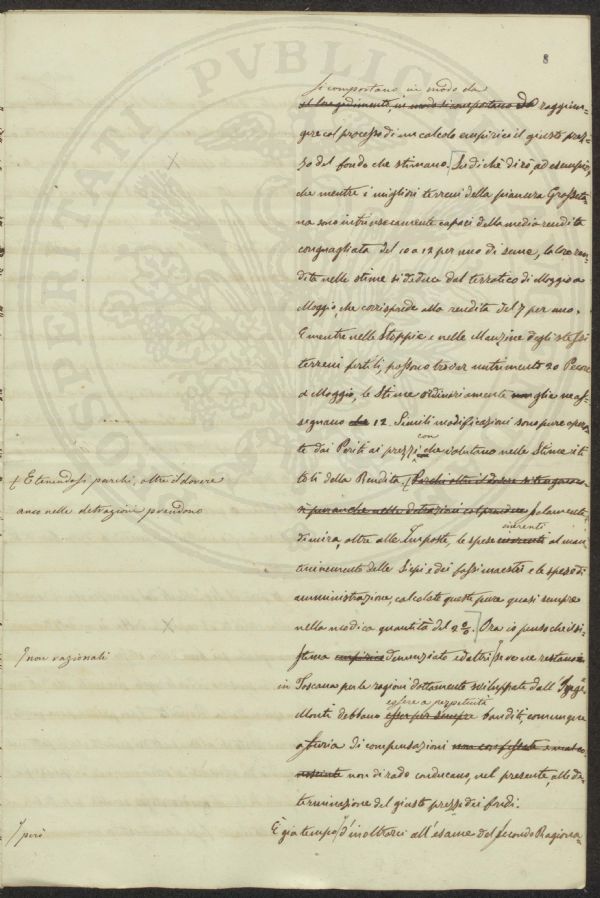 8
si comportano in modo da
raggiun-
gere col processo di un calcolo empirico il giusto prez-
zo del fondo che stimano. Ludichè dirò, ad esempio,
che mentre i migliori terreni della pianura Grosseta
na sono intrinsecamente capaci della media rendita
conguagliata del 10 a 12 per uno di seme, la loro ren
dita nelle stime si deduce dal terratico di Moggio a
Moggio, che corrisponde alla rendita del 7 per uno.
E mentre nelle Stoppie e nelle Manzine degli stessi
terreni fertili, possono trovar nutrimento 20 Pecore
a Moggio, le Stime ordinariamente non glie ne as-
segnano che 12. Simili modificazioni sono pure opera
te dai Periti ai prezzi con che valutano nelle Stime i ti
toli della Rendita.
E tenendosi parchi, oltre il dovere
anco nelle detrazioni prendono
solamente
di mira, oltre alle Imposte, le spese inerenti al man
tenimento delle Siepi e dei fossi maestri e le spese di
amministrazione, calcolate queste pure quasi sempre
nella modica quantità del 2 %. Ora io penso che il si-
stema empirico denunziato ed altri se ve ne restano
non razionali
in Toscana per le ragioni dottamente sviluppate dall' Ingegn.
Monti debbano essere a perpetuità esser per sempre banditi, comunque
a furia di compensazioni
non di rado conducano, nel presente, alla de-
terminazione del giusto prezzo dei fondi.
però
È già tempo d'inoltrarci all'esame del secondo Ragiona-